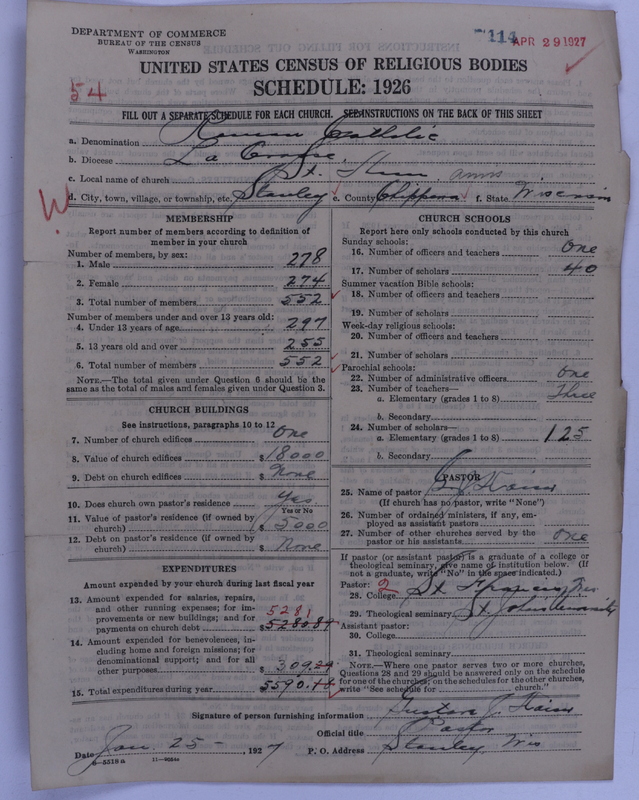 DEPARTMENT OF COMMERCE
BUREAU OF THE CENSUS
WASHINGTON
114 APR 29 1927
UNITED STATES CENSUS OF RELIGIOUS BODIES
SCHEDULE: 1926
54
FILL OUT A SEPARATE SCHEDULE FOR EACH CHURCH. SEE INSTRUCTIONS ON THE BACK OF THIS SHEET
a. Denomination Roman Catholic
b. Diocese La Crosse,
c. Local name of church St.
d. City, town, village, or township, etc. Stanley e. County Chippewa f. State Wisconsin
W
MEMBERSHIP
Report number of members according to definition of member in your church
Number of members, by sex:
1. Male 278
2. Female 274
3. Total number of members 552
Number of members under and over 13 years old:
4. Under 13 years of age 297
5. 13 years old and over 255
6. Total number of members 552
NOTE.—The total given under Question 6 should be the same as the total of males and females given under Question 3.
CHURCH BUILDINGS
See instructions, paragraphs 10 to 12
7. Number of church edifices One
8. Value of church edifices $18000
9. Debt on church edifices $ None
10. Does church own pastor's residence Yes
Yes or No
11. Value of pastor's residence (if owned by church) $5000
12. Debt on pastor's residence (if owned by church) $ None
EXPENDITURES
Amount expended by your church during last fiscal year
13. Amount expended for salaries, repairs, and other running expenses; for improvements or new buildings; and for payments on church debt 5281 $5280.84
14. Amount expended for benevolences, including home and foreign missions; for denominational support; and for all other purposes $309.29
15. Total expenditures during year 5590.
CHURCH SCHOOLS
Report here only schools conducted by this church
Sunday schools:
16. Number of officers and teachers One
17. Number of scholars 40
Summer vacation Bible schools:
18. Number of officers and teachers
19. Number of scholars
Week-day religious schools:
20. Number of officers and teachers
21. Number of scholars
Parochial schools:
22. Number of administrative officers One
23. Number of teachers—
a. Elementary (grades 1 to 8) Three
b. Secondary
24. Number of scholars—
a. Elementary (grades 1 to 8) 125
b. Secondary
PASTOR
25. Name of pastor
(If church has no pastor, write "None")
26. Number of ordained ministers, if any, employed as assistant pastors
27. Number of other churches served by the pastor or his assistants One
If pastor (or assistant pastor) is a graduate of a college or theological seminary, give name of institution below. (If not a graduate, write "No" in the space indicated.)
Pastor: 2
28. College St. Francis, Wis
29. Theological seminary St. Johns University
Assistant pastor:
30. College
31. Theological seminary
NOTE.—Where one pastor serves two or more churches, Questions 28 and 29 should be answered only on the schedule for one of the churches; on the schedules for the other churches, write "See schedule for church."
Signature of person furnishing information Gustave J.
Official title Pastor
Date Jan. 25 - 1927 P. O. Address Stanley, Wis